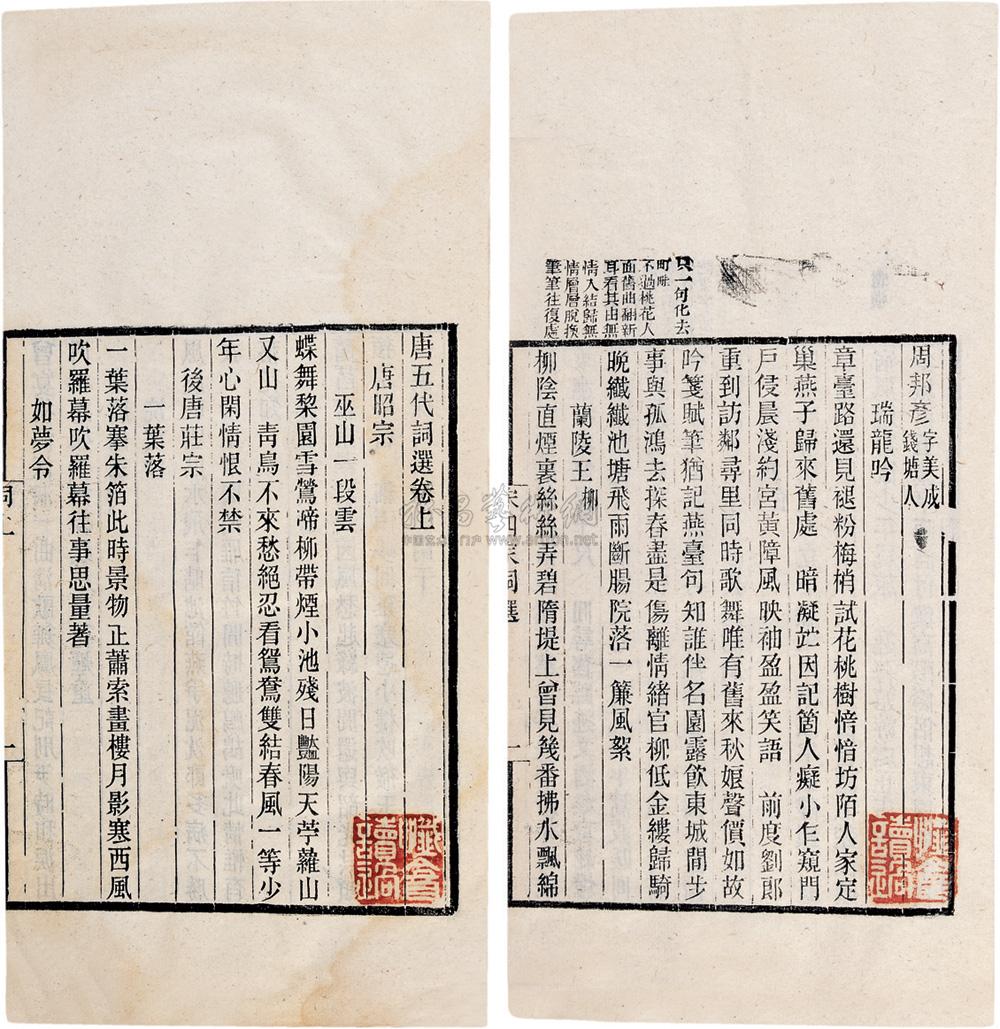 只一句化去
町畦
不過桃花人
面舊曲翻新
耳看其由無
情入結歸無
情層層脫換
筆筆往復處
周邦彥 字美成 錢塘人
瑞龍吟
章臺路還見褪粉梅梢試花桃樹愔愔坊陌人家定
巢燕子歸來舊處 暗凝竚因記箇人癡小乍窺門
戶侵晨淺約宮黃障風映袖盈盈笑語 前度劉郎
重到訪鄰尋里同時歌舞唯有舊來秋娘聲價如故
吟箋賦筆猶記燕臺句知誰伴名園露飲東城閒步
事與孤鴻去探春盡是傷離情緒官柳低金縷歸騎
晚纖纖池塘飛雨斷腸院落一簾風絮
蘭陵王 柳
柳陰直煙裏絲絲弄碧隋堤上曾見幾番拂水飄綿
讀過
唐五代詞選卷上
唐昭宗
巫山一段雲
蝶舞棃園雪鶯啼柳帶煙小池殘日豔陽天苧蘿山
又山 青鳥不來愁絕忍看鴛鴦雙結春風一等少
年心閑情恨不禁
後唐莊宗
一葉落
一葉落搴朱箔此時景物正蕭索畫樓月影寒西風
吹羅幕吹羅幕往事思量著
如夢令
讀過